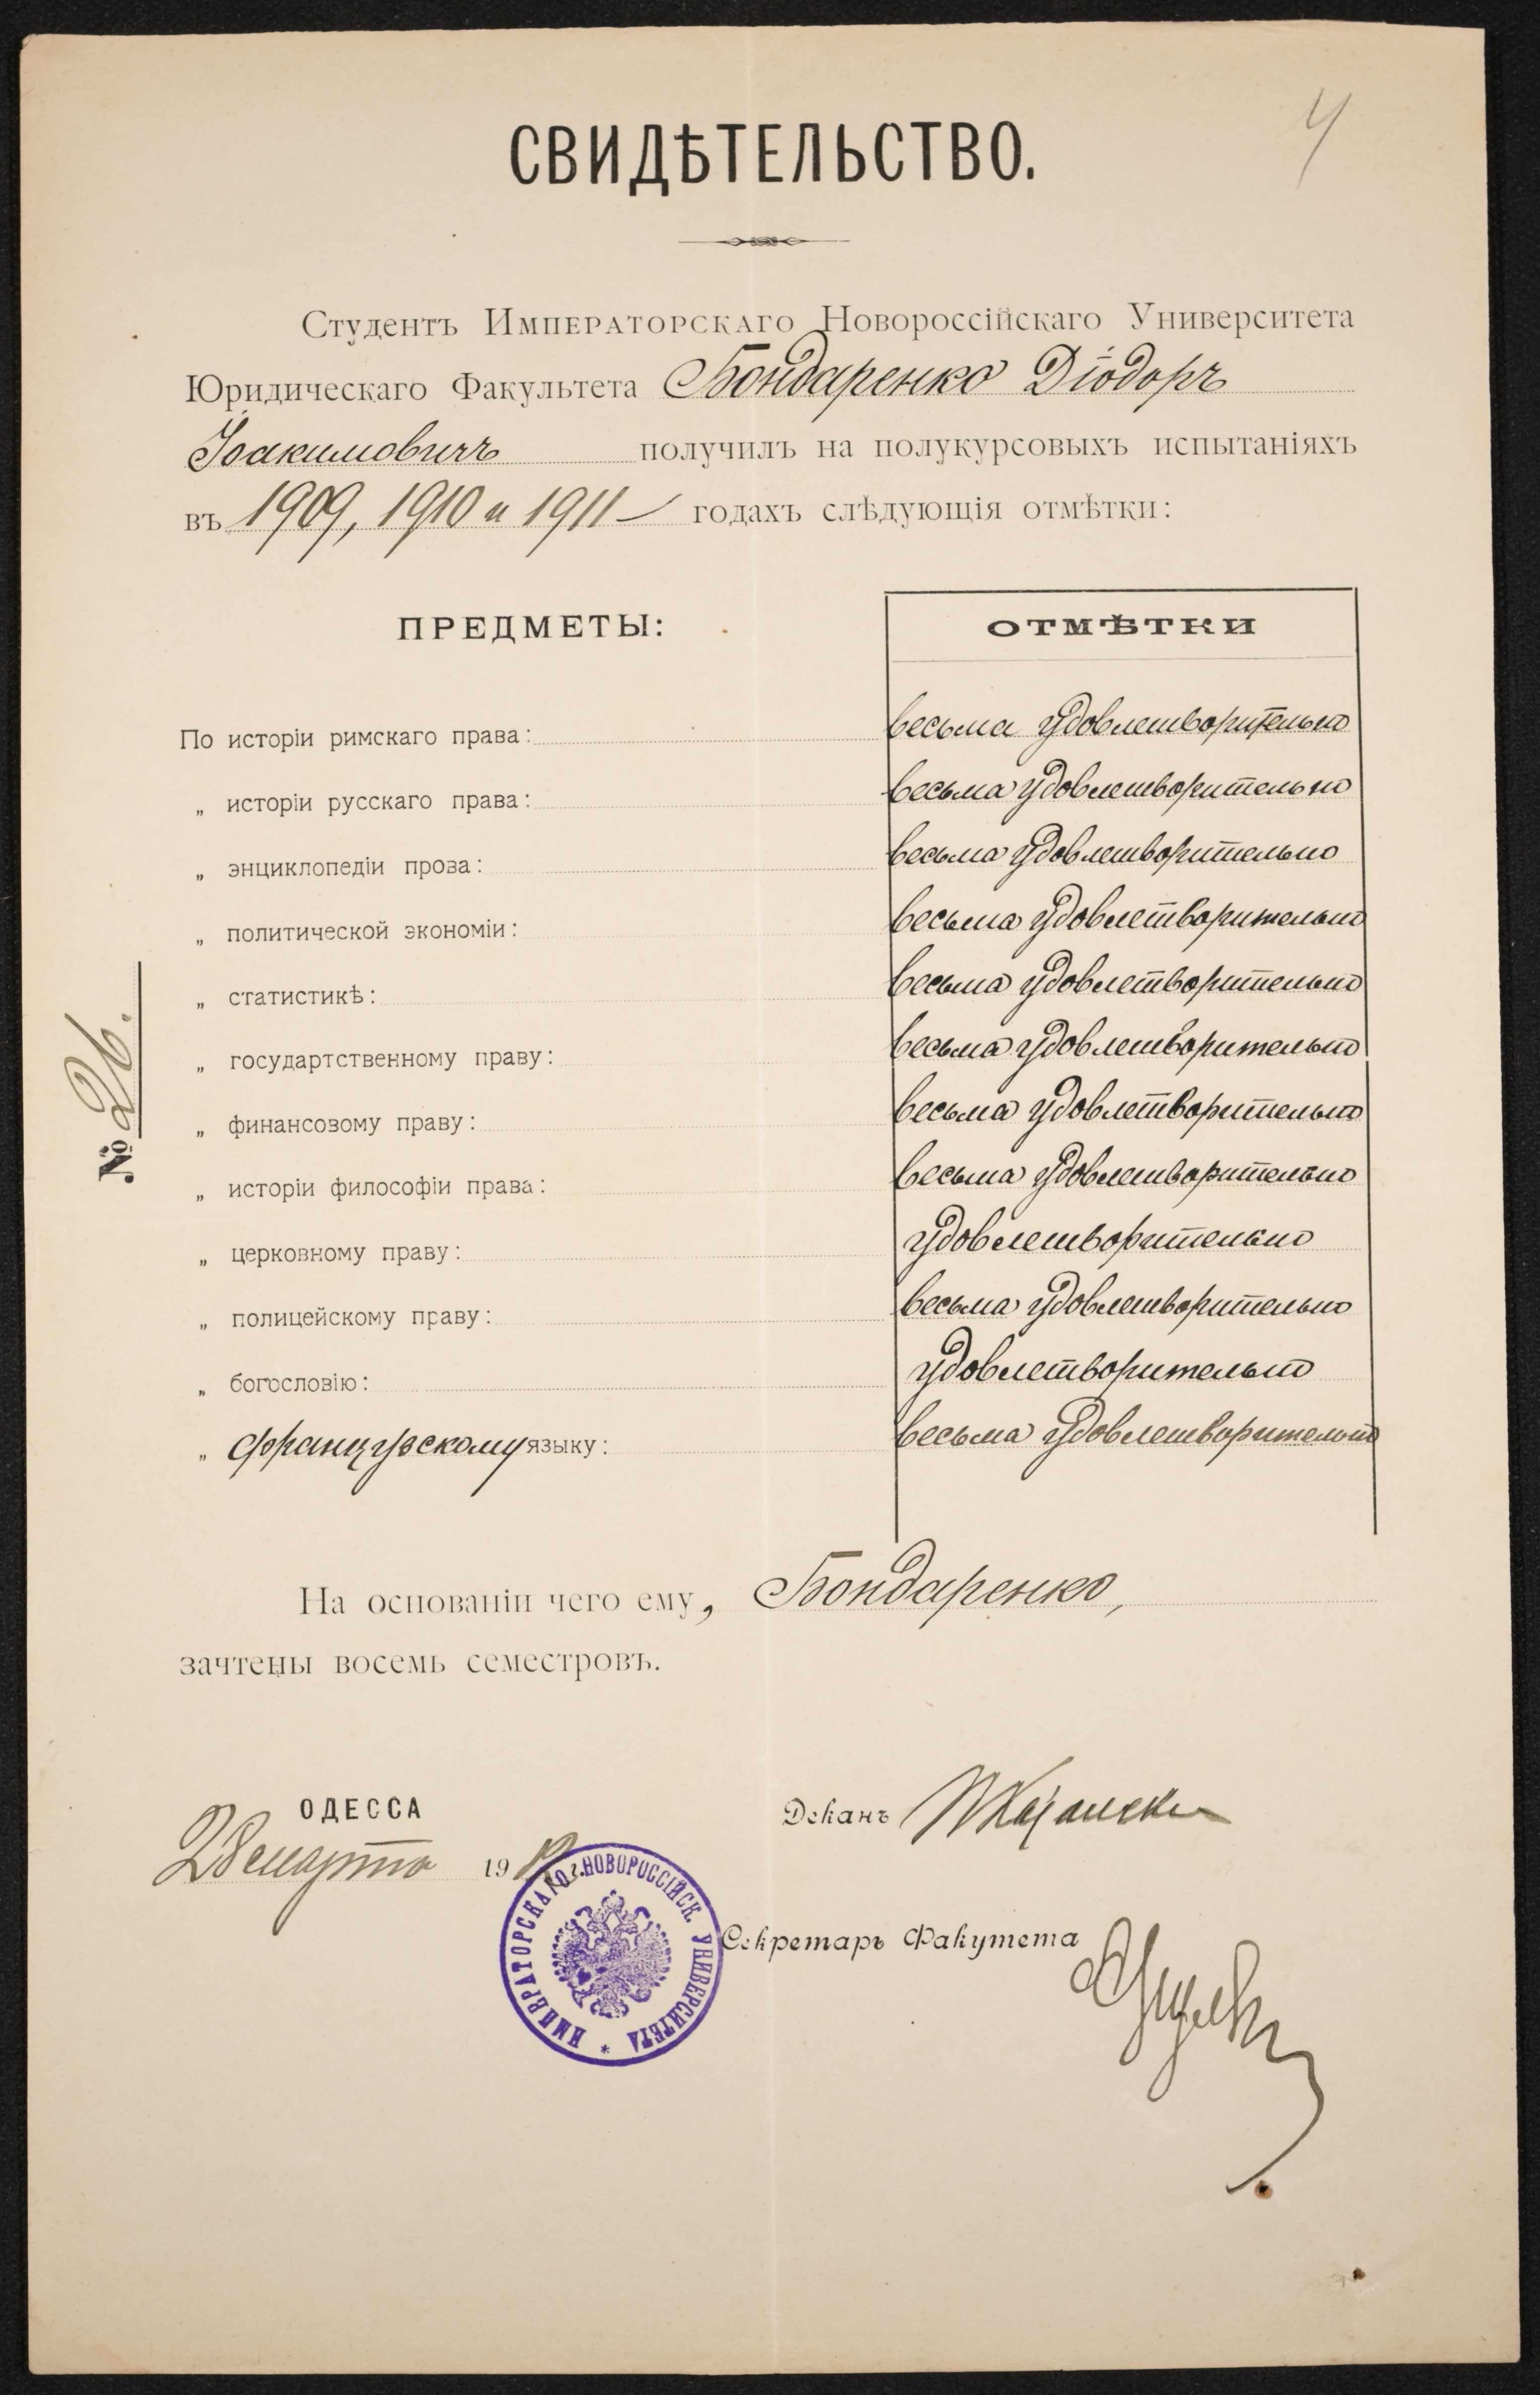 4
СВИДѢТЕЛЬСТВО.
Студентъ Императорскаго Новороссійскаго Университета
Юридическаго Факультета Бондаренко Діодоръ
Іоакимовичъ получилъ на полукурсовыхъ испытаніяхъ
въ 1909, 1910 и 1911 — годахъ слѣдующія отмѣтки:
ПРЕДМЕТЫ: ОТМѢТКИ
По исторіи римскаго права: весьма удовлетворительно
„ исторіи русскаго права: весьма удовлетворительно
„ энциклопедіи прова: весьма удовлетворительно
„ политической экономіи: весьма удовлетворительно
„ статистикѣ: весьма удовлетворительно
„ государтственному праву: весьма удовлетворительно
„ финансовому праву: весьма удовлетворительно
„ исторіи философіи права: весьма удовлетворительно
„ церковному праву: удовлетворительно
„ полицейскому праву: весьма удовлетворительно
„ богословію: удовлетворительно
„ французскому языку: весьма удовлетворительно
№ 26.
На основаніи чего ему, Бондаренко,
зачтены восемь семестровъ.
ОДЕССА
28 марта 19 г.
Деканъ
Секретарь Факутета
ИМПЕРАТОРСКАГО НОВОРОССІЙСК. УНИВЕРСИТЕТА *